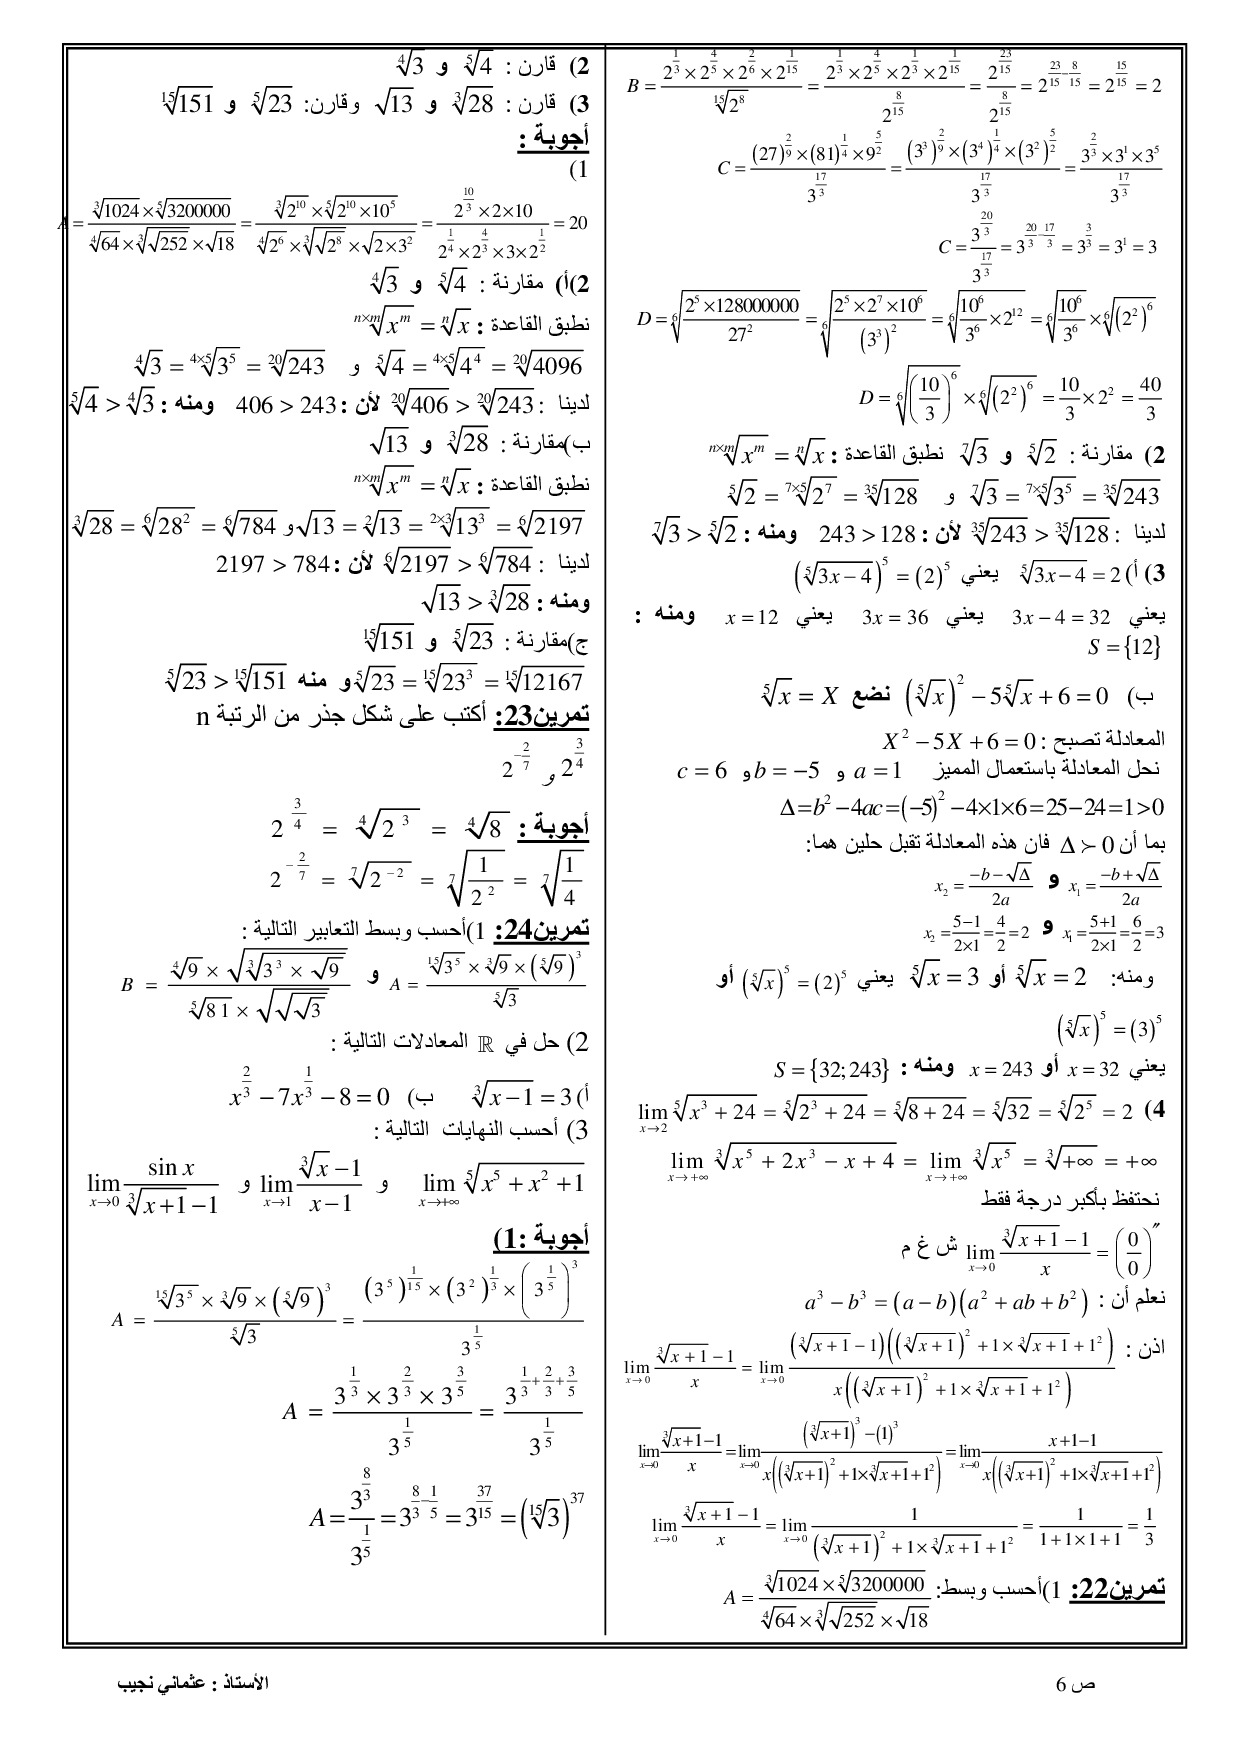 B = (2^(1/3) × 2^(4/5) × 2^(2/6) × 2^(1/15)) / ¹⁵√(2^8) = (2^(1/3) × 2^(4/5) × 2^(1/3) × 2^(1/15)) / 2^(8/15) = 2^(23/15) / 2^(8/15) = 2^(23/15 − 8/15) = 2^(15/15) = 2
C = ((27)^(2/9) × (81)^(1/4) × 9^(5/2)) / 3^(17/3) = ((3^3)^(2/9) × (3^4)^(1/4) × (3^2)^(5/2)) / 3^(17/3) = (3^(2/3) × 3^1 × 3^5) / 3^(17/3)
C = 3^(20/3) / 3^(17/3) = 3^(20/3 − 17/3) = 3^(3/3) = 3^1 = 3
D = ⁶√((2^5 × 128000000) / 27^2) = ⁶√((2^5 × 2^7 × 10^6) / (3^3)^2) = ⁶√(10^6/3^6 × 2^12) = ⁶√(10^6/3^6) × ⁶√((2^2)^6)
D = ⁶√((10/3)^6) × ⁶√((2^2)^6) = 10/3 × 2^2 = 40/3
2) مقارنة : ⁵√2 و ⁷√3 نطبق القاعدة : ⁿˣᵐ√(x^m) = ⁿ√x
⁵√2 = ⁷ˣ⁵√(2^7) = ³⁵√128 و ⁷√3 = ⁷ˣ⁵√(3^5) = ³⁵√243
لدينا : ³⁵√243 > ³⁵√128 لأن : 243 > 128 ومنه : ⁷√3 > ⁵√2
3) أ) ⁵√(3x − 4) = 2 يعني (⁵√(3x − 4))^5 = (2)^5
يعني 3x − 4 = 32 يعني 3x = 36 يعني x = 12 ومنه :
S = {12}
ب) (⁵√x)^2 − 5⁵√x + 6 = 0 نضع ⁵√x = X
المعادلة تصبح : X^2 − 5X + 6 = 0
نحل المعادلة باستعمال المميز a = 1 و b = −5 و c = 6
Δ = b^2 − 4ac = (−5)^2 − 4×1×6 = 25 − 24 = 1 > 0
بما أن Δ ≻ 0 فان هذه المعادلة تقبل حلين هما:
x₁ = (−b + √Δ)/2a و x₂ = (−b − √Δ)/2a
x₁ = (5+1)/(2×1) = 6/2 = 3 و x₂ = (5−1)/(2×1) = 4/2 = 2
ومنه: ⁵√x = 2 أو ⁵√x = 3 يعني (⁵√x)^5 = (2)^5 أو
(⁵√x)^5 = (3)^5
يعني x = 32 أو x = 243 ومنه : S = {32; 243}
4) lim x→2 ⁵√(x^3 + 24) = ⁵√(2^3 + 24) = ⁵√(8 + 24) = ⁵√32 = ⁵√(2^5) = 2
lim x→+∞ ³√(x^5 + 2x^3 − x + 4) = lim x→+∞ ³√(x^5) = ³√(+∞) = +∞
نحتفظ بأكبر درجة فقط
lim x→0 (³√(x+1) − 1)/x = (0/0)″ ش غ م
نعلم أن : a^3 − b^3 = (a − b)(a^2 + ab + b^2)
اذن : lim x→0 (³√(x+1) − 1)/x = lim x→0 ((³√(x+1) − 1)((³√(x+1))^2 + 1×³√(x+1) + 1^2)) / (x((³√(x+1))^2 + 1×³√(x+1) + 1^2))
lim x→0 (³√(x+1) − 1)/x = lim x→0 ((³√(x+1))^3 − (1)^3) / (x((³√(x+1))^2 + 1×³√(x+1) + 1^2)) = lim x→0 (x+1−1) / (x((³√(x+1))^2 + 1×³√(x+1) + 1^2))
lim x→0 (³√(x+1) − 1)/x = lim x→0 1 / ((³√(x+1))^2 + 1×³√(x+1) + 1^2) = 1/(1+1×1+1) = 1/3
تمرين22: 1)أحسب وبسط: A = (³√1024 × ⁵√3200000) / (⁴√64 × ³√(√252) × √18)
2) قارن : ⁵√4 و ⁴√3
3) قارن : ³√28 و √13 وقارن: ⁵√23 و ¹⁵√151
أجوبة :
1)
A = (³√1024 × ⁵√3200000) / (⁴√64 × ³√(√252) × √18) = (³√(2^10) × ⁵√(2^10 × 10^5)) / (⁴√(2^6) × ³√(√(2^8)) × √(2×3^2)) = (2^(10/3) × 2 × 10) / (2^(1/4) × 2^(4/3) × 3 × 2^(1/2)) = 20
2)أ) مقارنة : ⁵√4 و ⁴√3
نطبق القاعدة : ⁿˣᵐ√(x^m) = ⁿ√x
⁵√4 = ⁴ˣ⁵√(4^4) = ²⁰√4096 و ⁴√3 = ⁴ˣ⁵√(3^5) = ²⁰√243
لدينا : ²⁰√406 > ²⁰√243 لأن : 406 > 243 ومنه : ⁵√4 > ⁴√3
ب)مقارنة : ³√28 و √13
نطبق القاعدة : ⁿˣᵐ√(x^m) = ⁿ√x
³√28 = ⁶√(28^2) = ⁶√784 و √13 = ²√13 = ²ˣ³√(13^3) = ⁶√2197
لدينا : ⁶√2197 > ⁶√784 لأن : 2197 > 784
ومنه : √13 > ³√28
ج)مقارنة : ⁵√23 و ¹⁵√151
⁵√23 = ¹⁵√(23^3) = ¹⁵√12167 و منه ⁵√23 > ¹⁵√151
تمرين23: أكتب على شكل جذر من الرتبة n
2^(3/4) و 2^(−2/7)
أجوبة : 2^(3/4) = ⁴√(2^3) = ⁴√8
2^(−2/7) = ⁷√(2^(−2)) = ⁷√(1/2^2) = ⁷√(1/4)
تمرين24: 1)أحسب وبسط التعابير التالية :
A = (¹⁵√(3^5) × ³√9 × (⁵√9)^3) / ⁵√3 و B = (⁴√9 × √(³√(3^3 × √9))) / (⁵√81 × √(√(√3)))
2) حل في ℝ المعادلات التالية :
أ) ³√(x − 1) = 3 ب) x^(2/3) − 7x^(1/3) − 8 = 0
3) أحسب النهايات التالية :
lim x→+∞ ⁵√(x^5 + x^2 + 1) و lim x→1 (³√x − 1)/(x − 1) و lim x→0 sin x/(³√(x+1) − 1)
أجوبة :1)
A = (¹⁵√(3^5) × ³√9 × (⁵√9)^3) / ⁵√3 = ((3^5)^(1/15) × (3^2)^(1/3) × (3^(1/5))^3) / 3^(1/5)
A = (3^(1/3) × 3^(2/3) × 3^(3/5)) / 3^(1/5) = 3^(1/3 + 2/3 + 3/5) / 3^(1/5)
A = 3^(8/3) / 3^(1/5) = 3^(8/3 − 1/5) = 3^(37/15) = (¹⁵√3)^37
ص 6
الأستاذ : عثماني نجيب